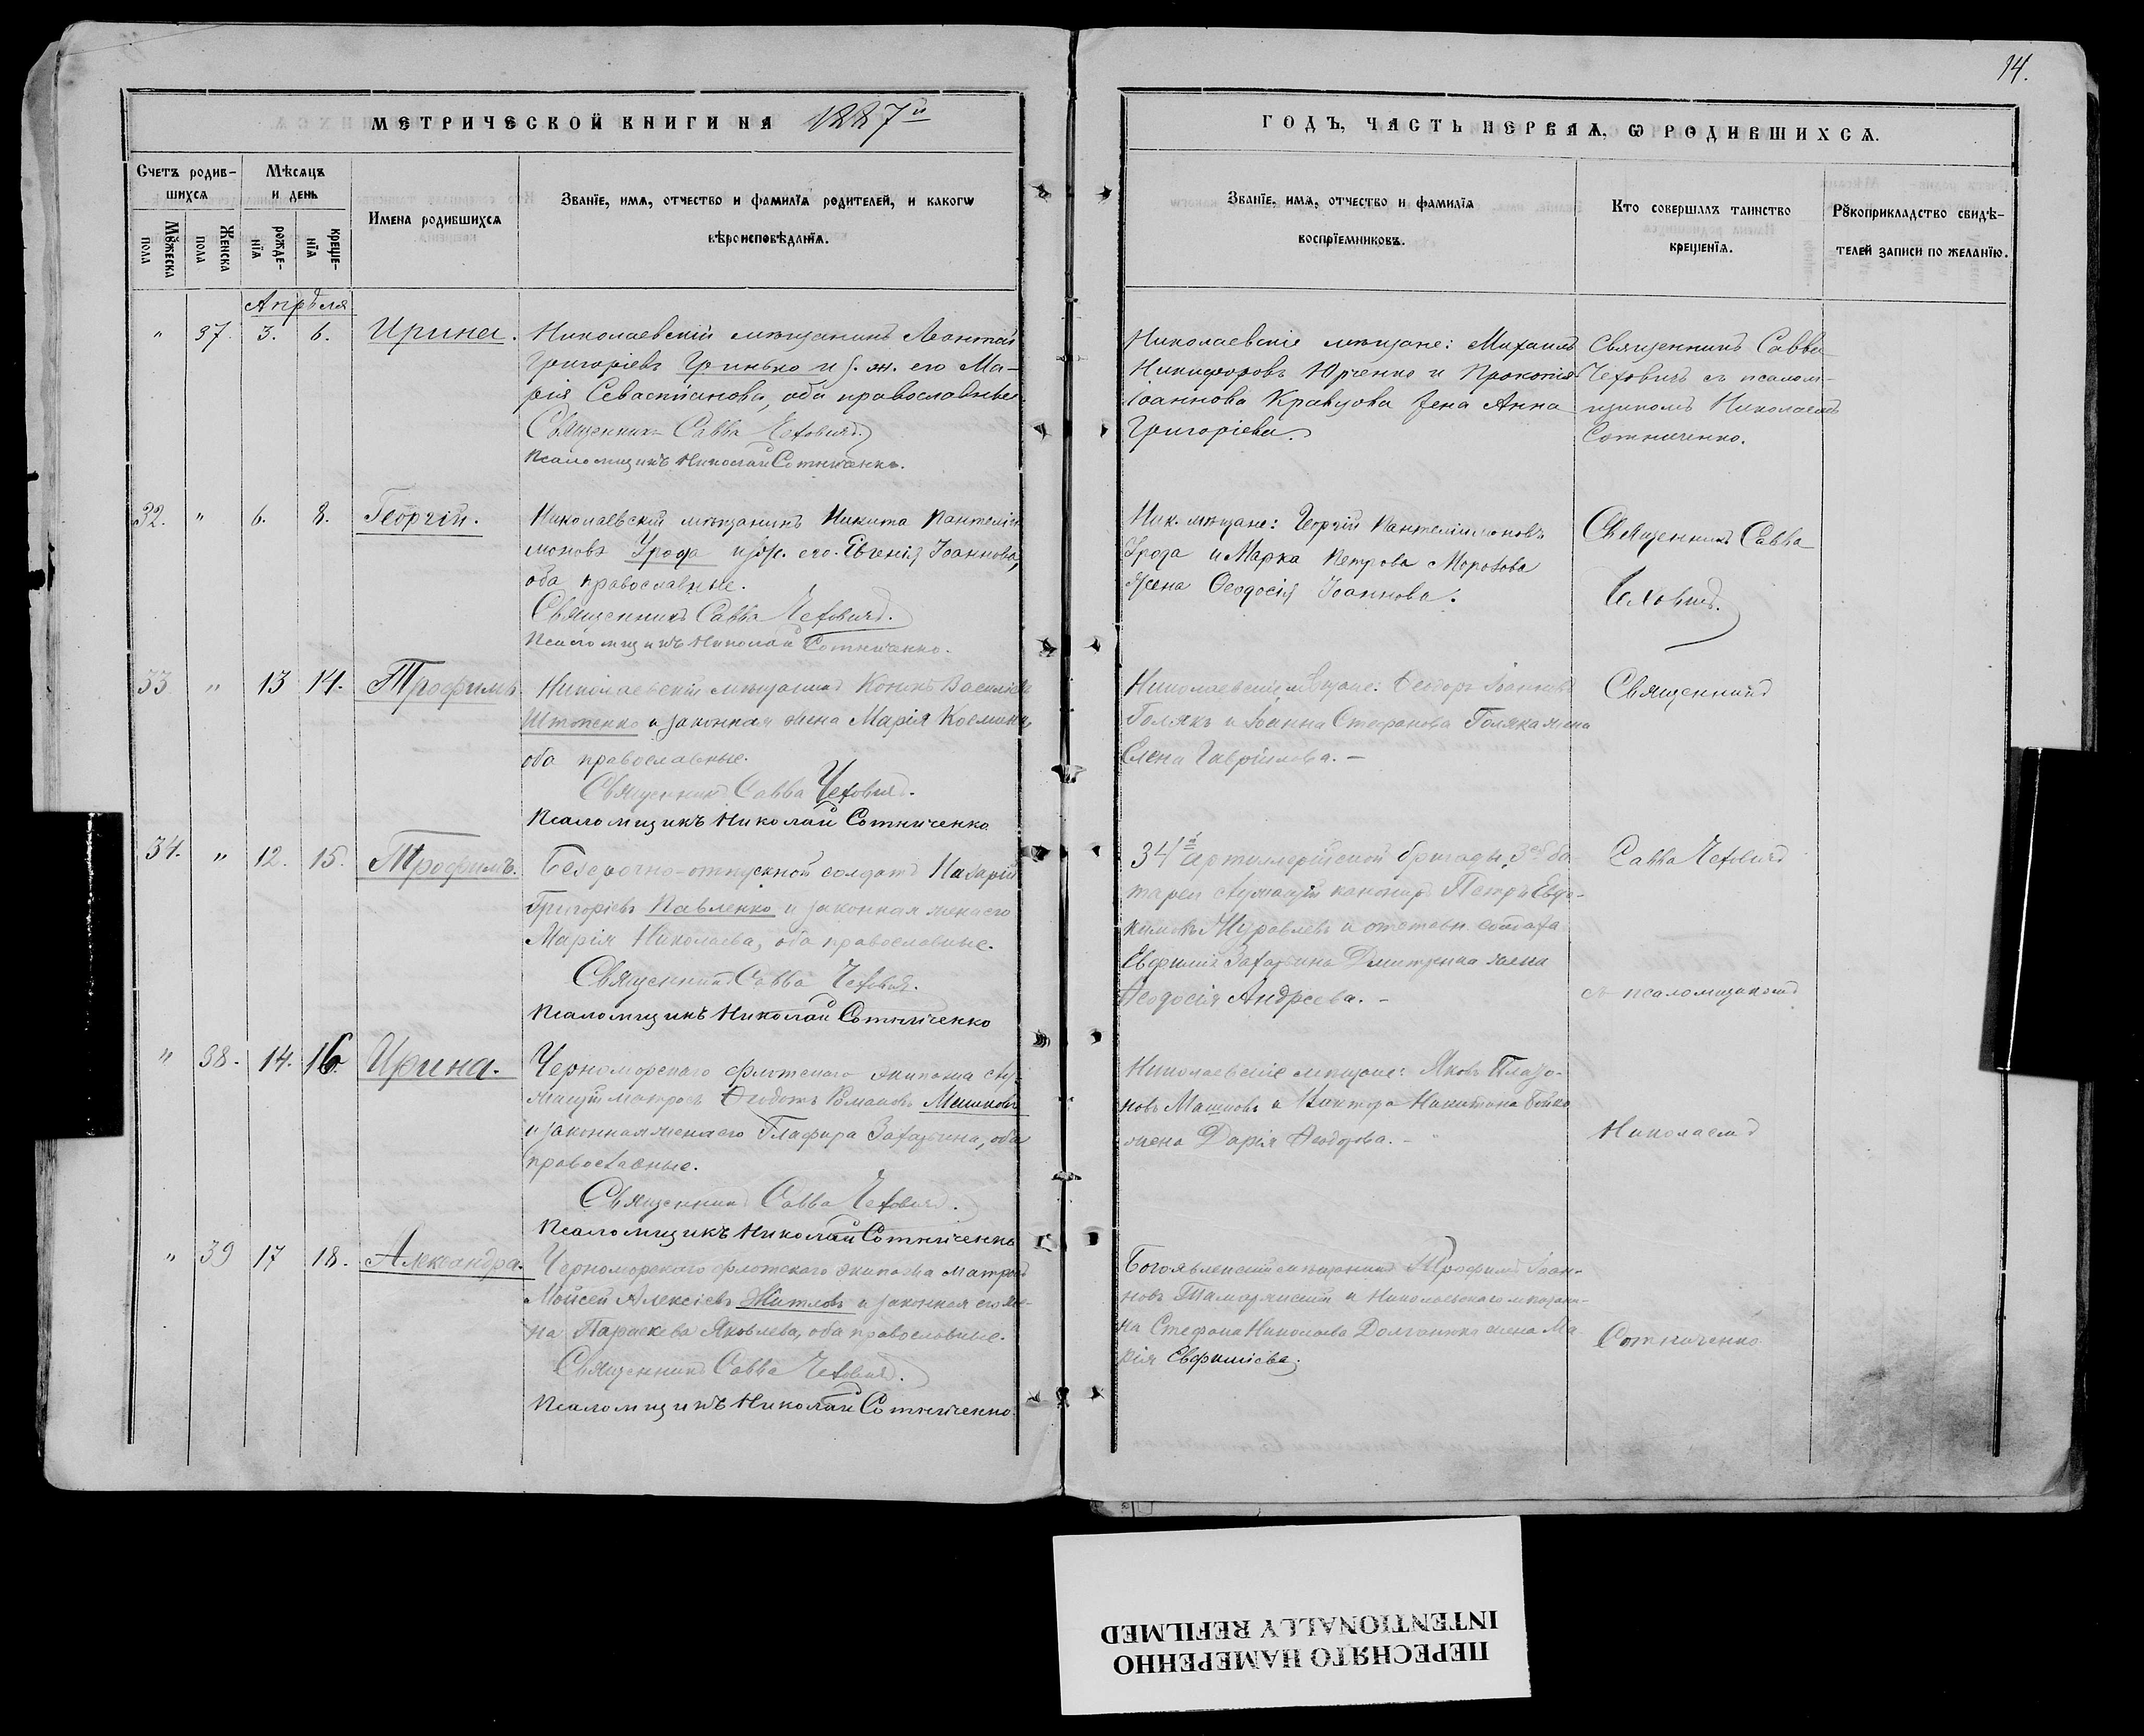 14.
МЕТРИЧЕСКОЙ КНИГИ НА 1887й
ГОДЪ, ЧАСТЬ ПЕРВАЯ, Ѡ РОДИВШИХСѦ.
Счетъ родив-
шихсѧ
Мѣсѧцъ
и день
Мꙋжеска
пола
Женска
пола
рожде-
нїѧ
креще-
нїѧ
Имена родившихсѧ
Званїе, имѧ, отчество и фамилїѧ родителей, и какогѡ
вѣроисповѣданїѧ.
Званїе, имѧ, отчество и фамилїѧ
воспрїемниковъ.
Кто совершалъ таинство
крещенїѧ.
Рꙋкоприкладство свидѣ-
телей записи по желанїю.
Апрѣля
" 37. 3. 6. Ирина.
Николаевскій мѣщанинъ Леонтій
Григоріевъ Гринько и з. ж. его Ма-
рія Севастіанова, оба православные
Священникъ Савва Чеховичъ.
Псаломщикъ Николай Сотниченко.
Николаевскіе мѣщане: Михаилъ
Никифоровъ Юрченко и Прокопія
Іоаннова Кравцова жена Анна
Григоріева.
Священникъ Савва
Чеховичъ съ псалом-
щикомъ Николаемъ
Сотниченко.
32. " 6. 8. Георгій.
Николаевскій мѣщанинъ Никита Пантелій
моновъ Урода и его Евгенія Іоаннова,
оба православные.
Священникъ Савва Чеховичъ.
Псаломщикъ Николай Сотниченко.
Ник. мѣщане: Георгій Пантелеімоновъ
Урода и Марка Петрова Морозова
жена Ѳеодосія Іоаннова.
Священникъ Савва
Чеховичъ.
33 " 13 14. Трофимъ.
Николаевскій мѣщанинъ Василіевъ
и законная жена Марія
оба православные.
Священникъ Савва Чеховичъ.
Псаломщикъ Николай Сотниченко
Николаевскіе мѣщане: Ѳеодоръ Іоанновъ
Голякъ и Іоанна Стефанова Голяка жена
Елена Гавріилова. —
Священникъ
34. " 12. 15. Трофимъ.
Безсрочно-отпускной солдатъ Назарій
Григоріевъ Павленко и законная жена его
Марія Николаева, оба православные.
Священникъ Савва Чеховичъ.
Псаломщикъ Николай Сотниченко
34й артиллерійской бригады, 3ей ба
тареи служащій канониръ Петръ Евдо-
кимовъ Журавлевъ и отставн. солдата
Евфимія Захарьина Дмитренка жена
Ѳеодосія Андреева. -
Савва Чеховичъ
съ псаломщикомъ
" 38. 14. 16. Ирина.
Черноморскаго флотскаго экипажа слу-
жащій матросъ Ѳеодотъ Романовъ Машковъ
и законная жена его Глафира Захарьина, оба
православные.
Священникъ Савва Чеховичъ.
Псаломщикъ Николай Сотниченко
Николаевскіе мѣщане: Яковъ Плато-
новъ Машковъ и Виктора Никитина Бойко
жена Дарія Ѳеодорова. -
Николаемъ
" 39 17 18. Александра.
Черноморскаго флотскаго экипажа матросъ
Мойсей Алексіевъ Житловъ и законная его же-
на Параскева Яковлева, оба православные.
Священникъ Савва Чеховичъ.
Псаломщикъ Николай Сотниченко.
Богоявленскій мѣщанинъ Трофимъ Іоан-
новъ и Николаевскаго мѣщани-
на Стефана Николаева жена Ма
рія Евфиміева.
Сотниченко
ПЕРЕСНЯТО НАМЕРЕННО
INTENTIONALLY REFILMED